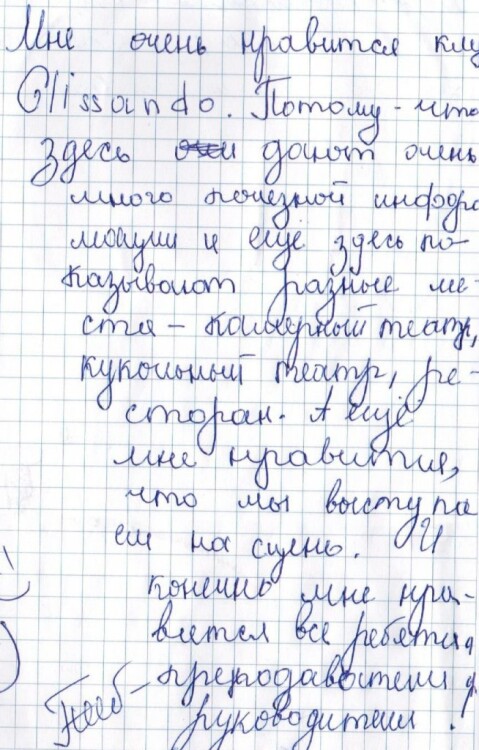 Мне очень нравится клу
Glissando. Потому-что
здесь дают очень
много полезной инфор
мации и ещё здесь по-
казывают разные ме-
ста - камерный театр,
кукольный театр, ре-
сторан. А ещё
мне нравится,
что мы выступа
ем на сцене. И
конечно мне нра-
вятся все ребята,
преподаватели и
руководители!